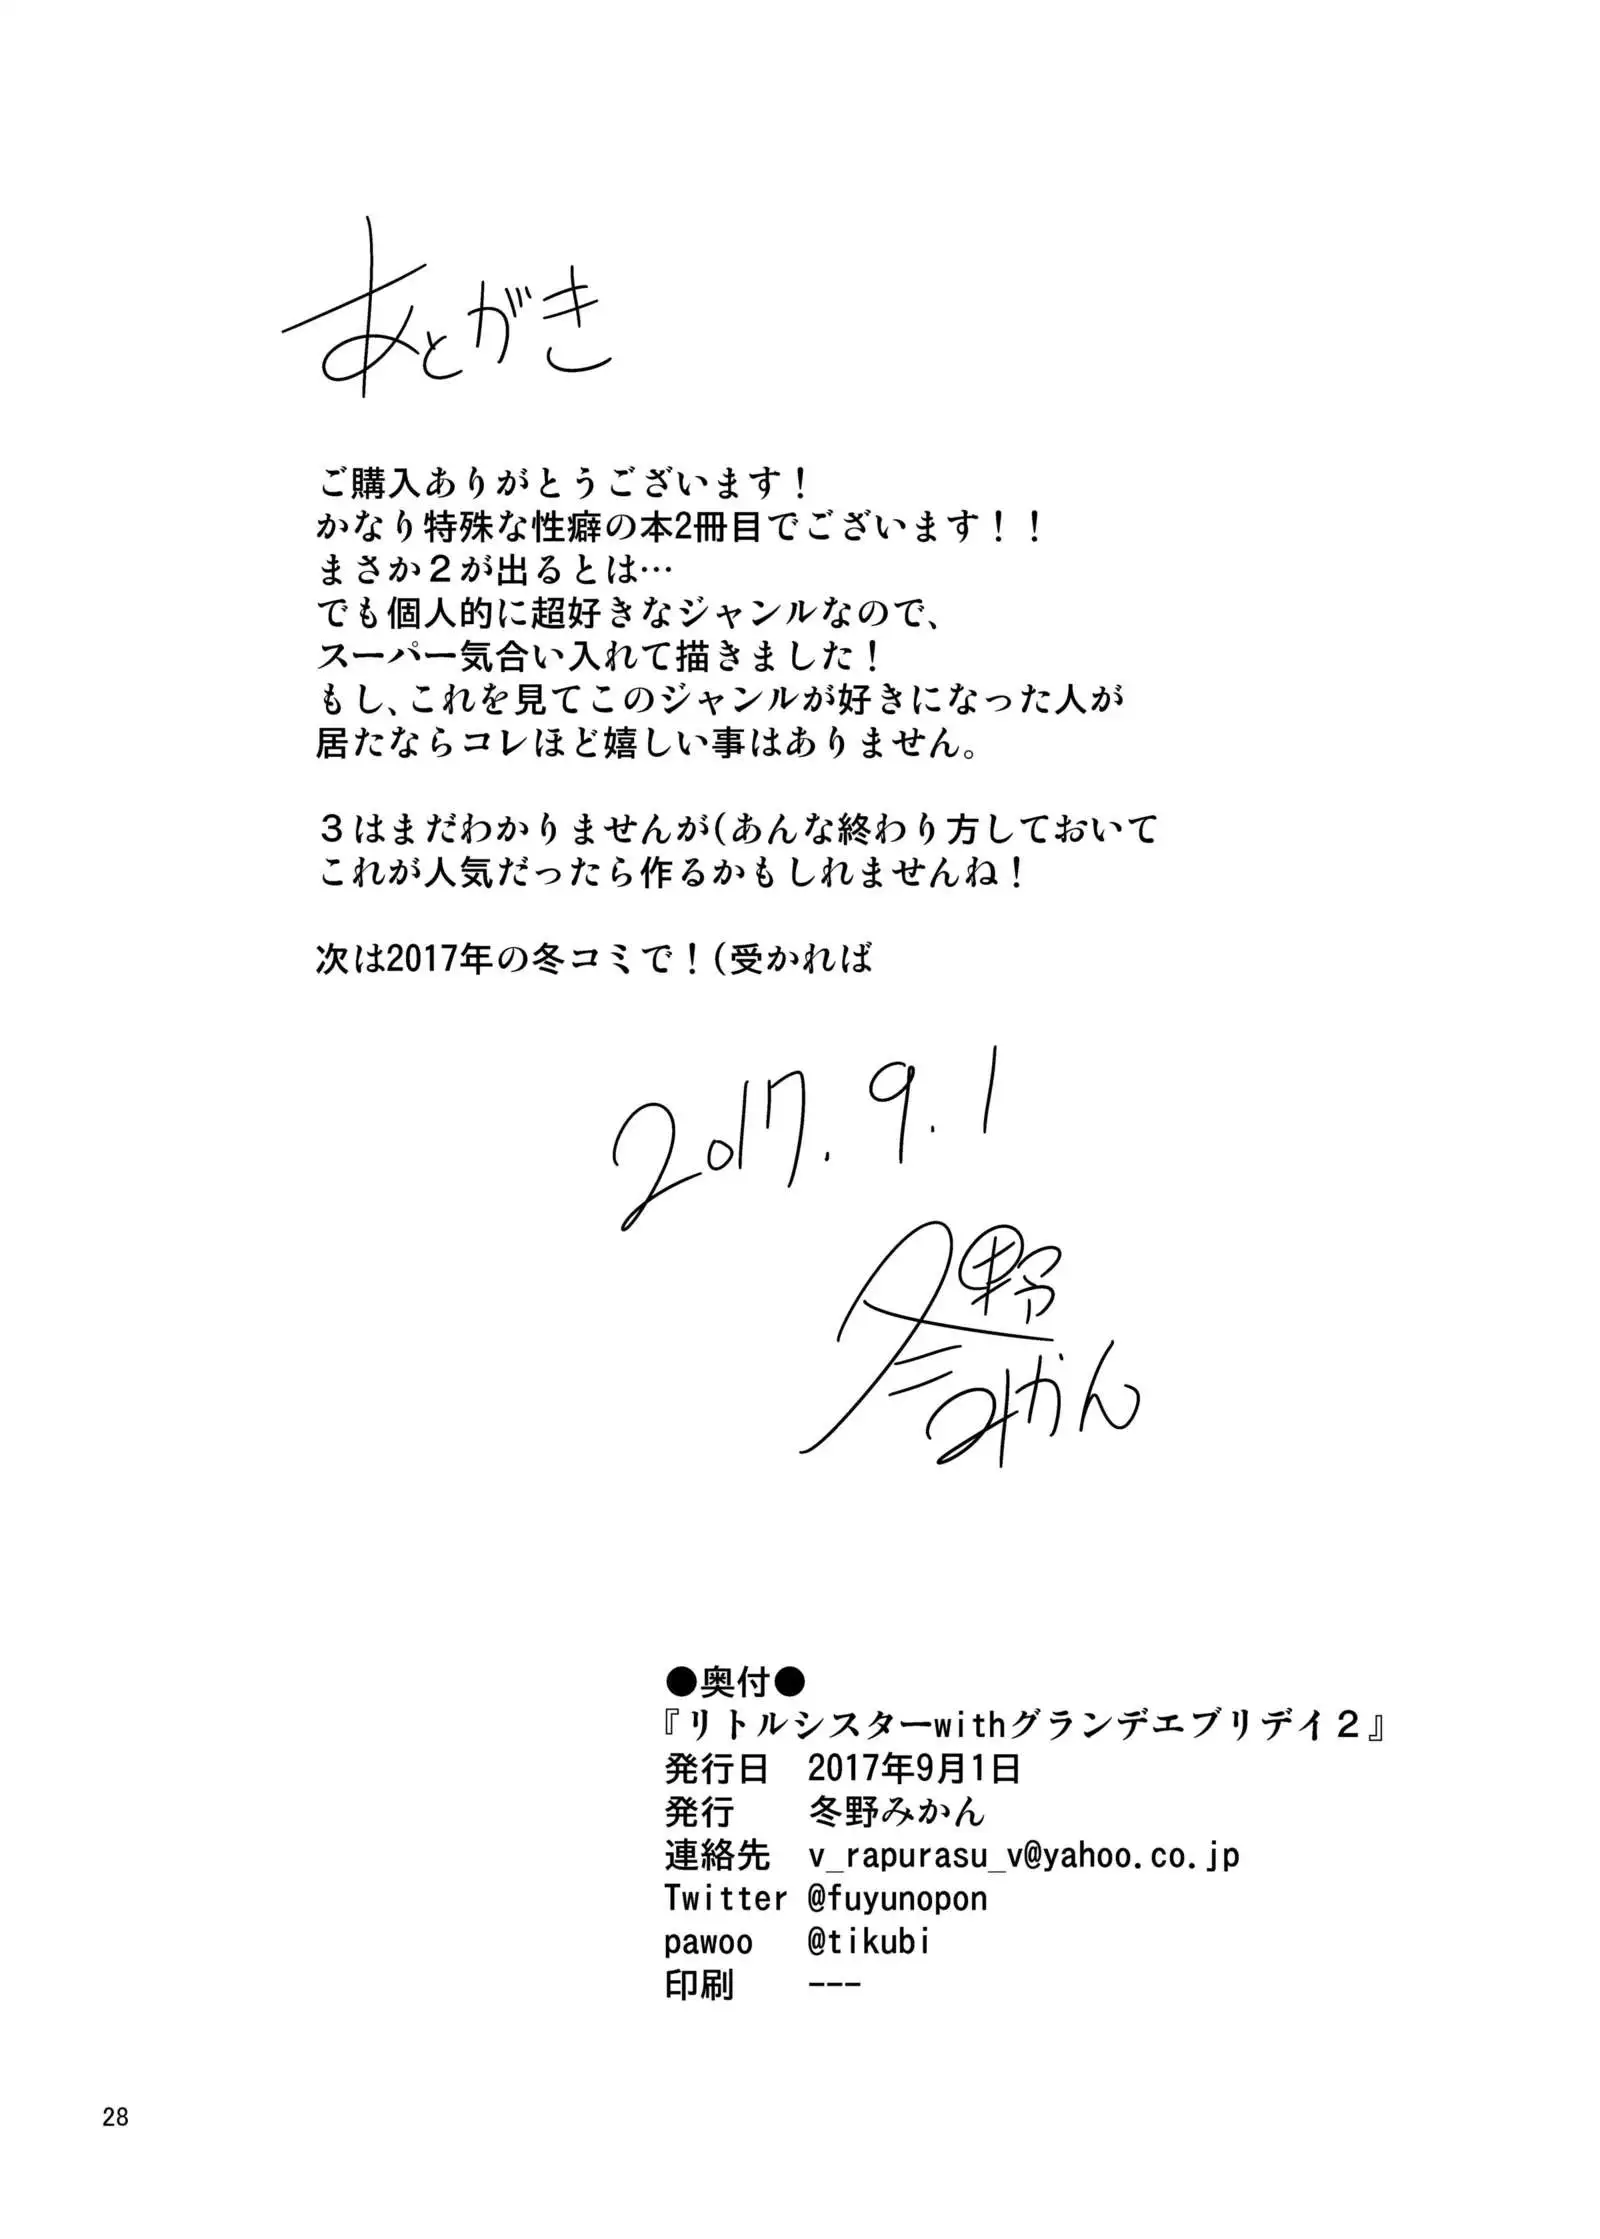 あとがき
ご購入ありがとうございます！
かなり特殊な性癖の本2冊目でございます！！
まさか２が出るとは…
でも個人的に超好きなジャンルなので、
スーパー気合い入れて描きました！
もし、これを見てこのジャンルが好きになった人が
居たならコレほど嬉しい事はありません。
３はまだわかりませんが(あんな終わり方しておいて
これが人気だったら作るかもしれませんね！
次は2017年の冬コミで！(受かれば
2017.9.1
冬野
みかん
●奥付●
『リトルシスターwithグランデエブリデイ２』
発行日　2017年9月1日
発行　　冬野みかん
連絡先　v_rapurasu_v@yahoo.co.jp
Twitter @fuyunopon
pawoo　 @tikubi
印刷　　---
28